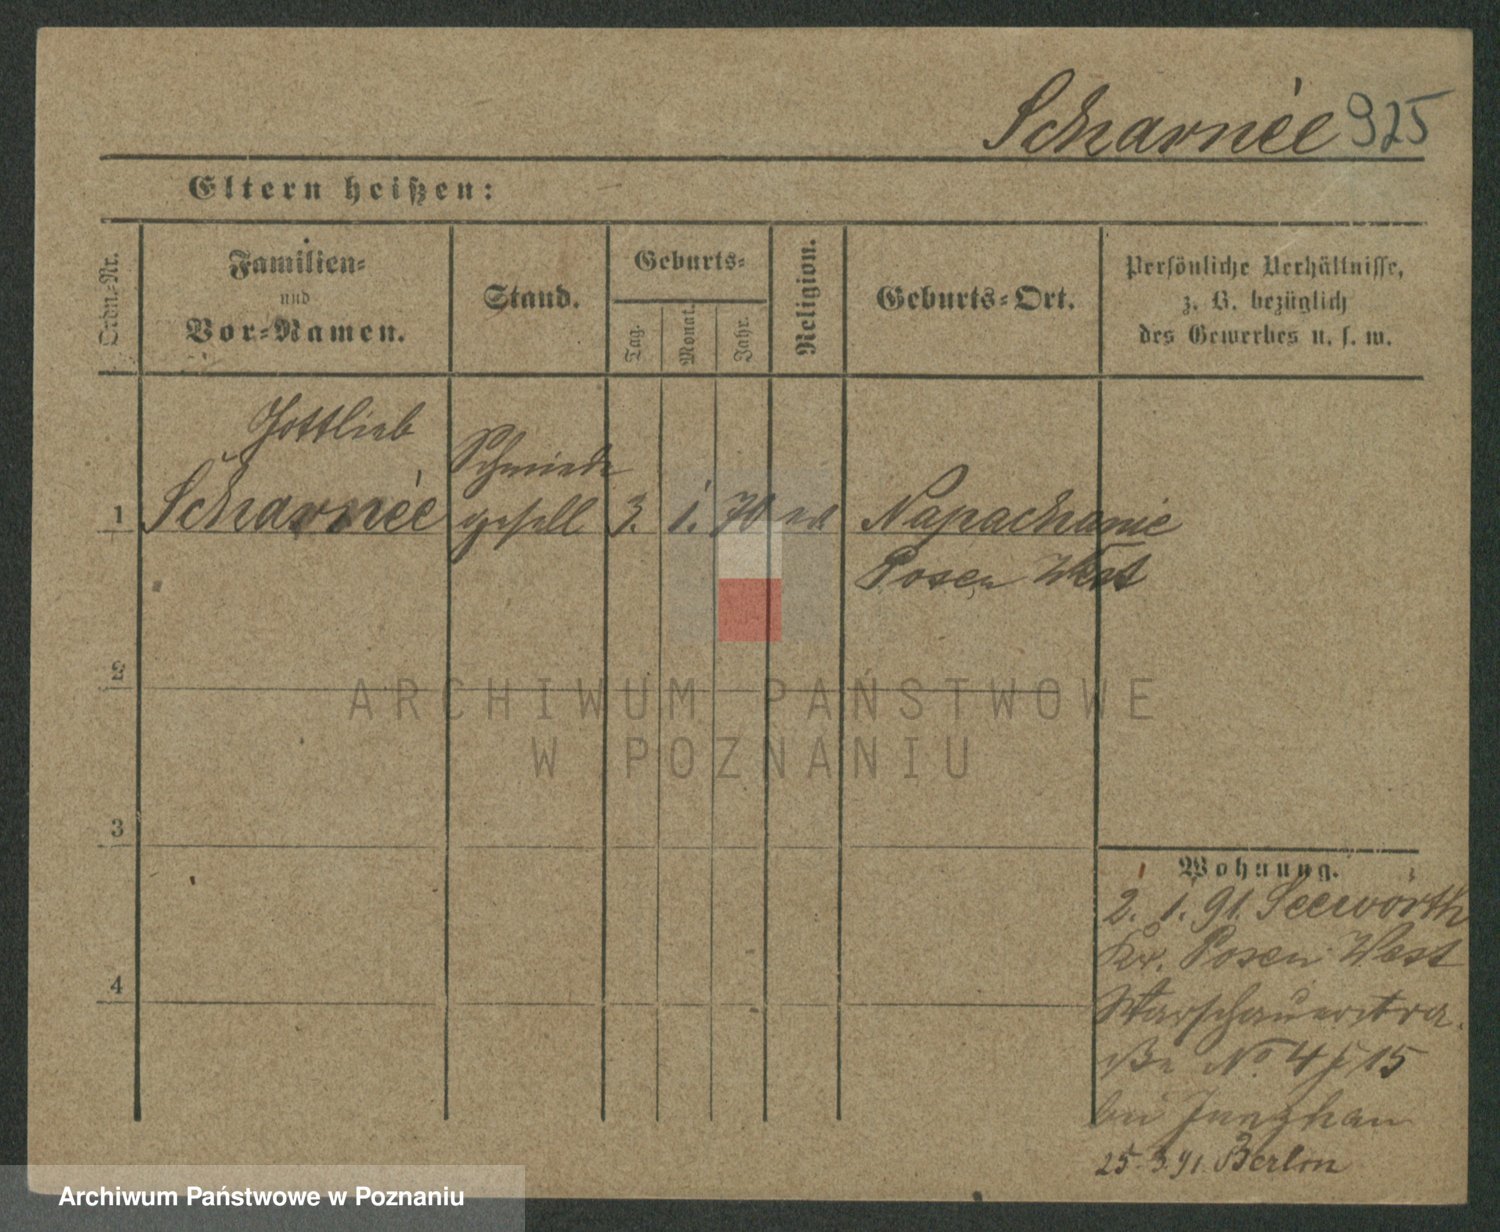 Scharnée 925
Eltern heißen:
Ordn.-Nr.
Familien-
und
Vor-Namen.
Stand.
Geburts-
Tag.
Monat.
Jahr.
Religion.
Geburts-Ort.
Persönliche Verhältnisse,
z. B. bezüglich
des Gewerbes u. s. w.
Gottlieb
Schmiede
1 Scharnée gesell 3. 1. 70 ev Napachanie
Posen West
2
ARCHIWUM PAŃSTWOWE
W POZNANIU
3
Wohnung.
2. 1. 91. Seeworth
4
Kr. Posen West
Warschauerstra
ße No 4/15
bei Junghan
25.3.91. Berlin
Archiwum Państwowe w Poznaniu